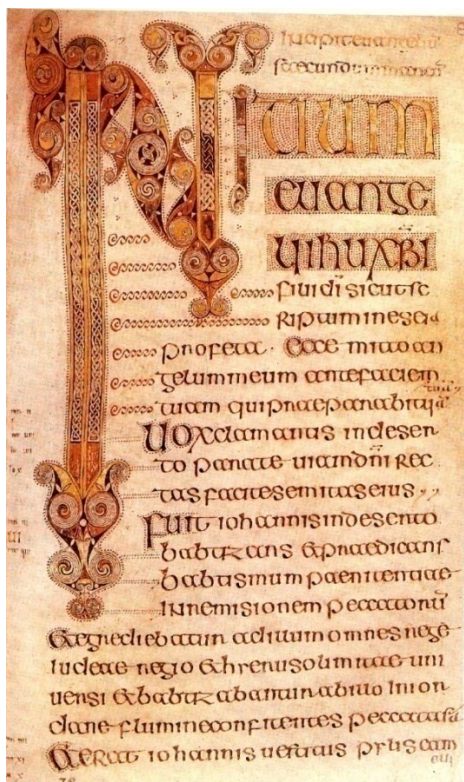 Incipit euangeliū
secundum marcū
INITIUM
euange
lii ihu xpi
filii di sicut sc
riptum in esei a
profeta · Ecce mitto an
gelum meum ante faciem
tuam qui praeparabit uiā tuā
Uox clamantis in deser
to parate uiam dni rec
tas facite semitas eius ,,
Fuit iohannis in deserto
babtizans & praedicans
babtismum paenitentiae
in remisionem peccatorū
& egrediebatur ad illum omnes rege
iudeae regio & hierusolimitae uni
uersi & babtizabantur ab illo in ior
dane flumine confitentes peccata sua
& erat iohannis uestitus pylis cam
eli